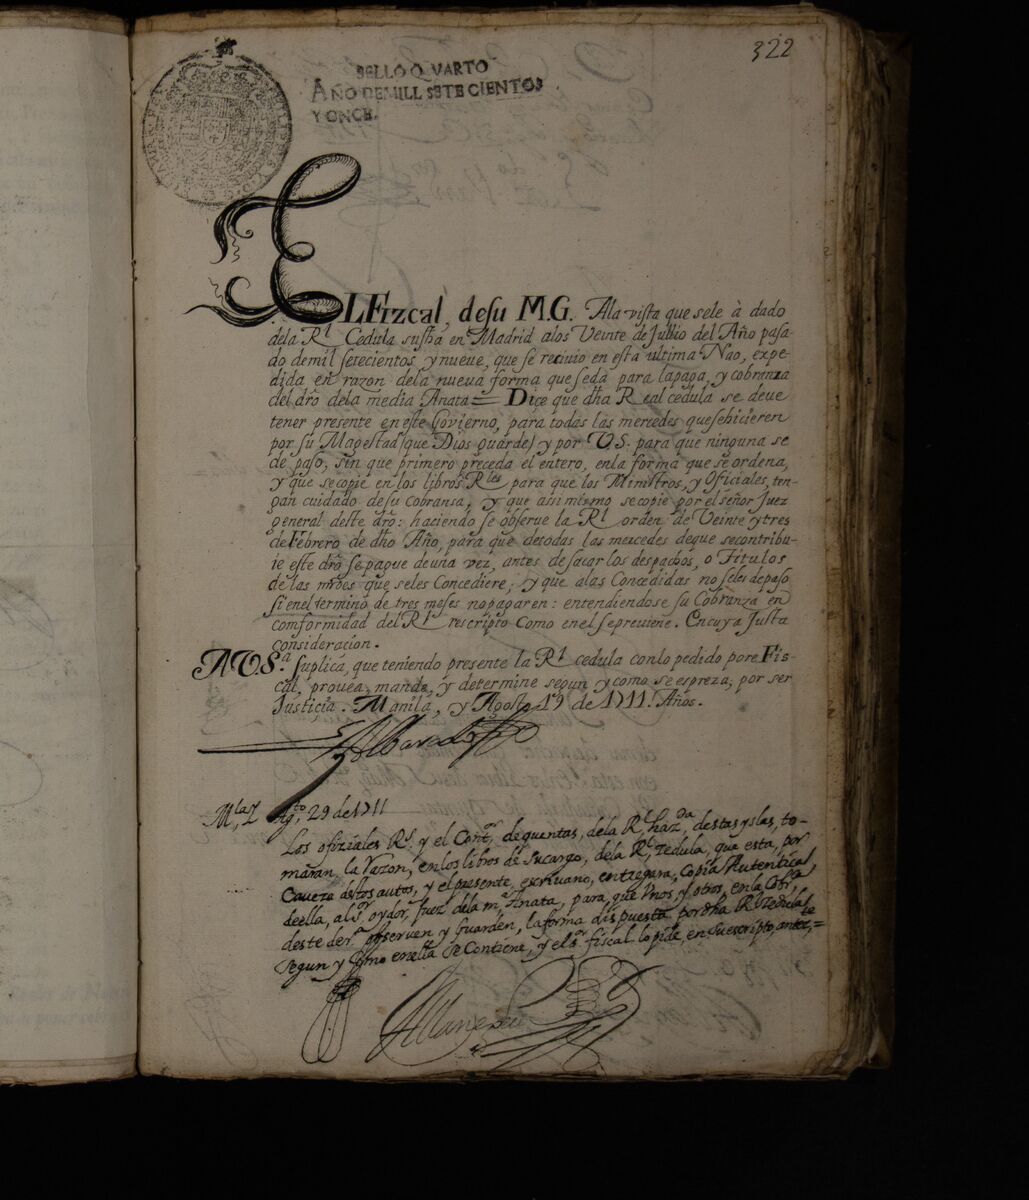 322
SELLO QVARTO
AÑO DE MILL SETE CIENTOS
Y ONCE.
EL Fizcal, desu M.G. Ala vista que sele à dado
dela Rl Cedula susfha en Madrid alos Veinte de Jullio del Año pasa-
do demil setecientos, y nueve, que se reciuio en esta ultima Nao, expe-
dida en razon dela nueva forma que seda para lapaga, y cobranza
del dro dela media Anata = Dice que dha Real cedula se deve
tener presente en este Govierno, para todas las mercedes quesehicieren
por su Magestad (que Dios guarde) y por V.S. para que ninguna se
de paso, sin que primero preceda el entero, enla forma que se ordena,
y que secopie en los libros Rles para que los Ministros, y Oficiales, ten-
gan cuidado desu Cobransa, y que asi mismo secopie por el señor Juez
general deste dro: haciendo se observe la Rl orden de Veinte y tres
de Febrero de dho Año, para que detodas las mercedes deque secontribu-
ie este dro se pague deuna vez, antes desacar los despachos, o Titulos
de las mrdes que seles Concediere; y que alas Concedidas no seles depaso
si enel termino de tres meses nopagaren: entendiendose su Cobranza en
comformidad del Rl rescripto Como enel sepreviene. Encuya Justa
consideracion.
A V.S.a suplica, que teniendo presente la Rl cedula conlo pedido pore Fis-
cal, provea, mande, y determine segun y como se espreza, por ser
Justicia. Manila, y Agosto 19 de 1711. Años.
Mla y Agto 29 de 1711
Los ofiziales Rs. y el Contor dequentas, dela Rl hazda destas yslas, to-
maran la razon, en los libros de sucargo, dela Rl zedula, que esta, por
Caveza destos autos, y el presente escriuano, entregara, Copia Autentica,
deella, al sr oydor, Juez dela ma Anata, para, que Unos, y otros, en la Cobrza
deste dero observen y Guarden, la forma dispuesta por dha Rl Zedula
segun y Como enella se Contiene, y el sr fiscal lo pide, en su escripto, antezte=